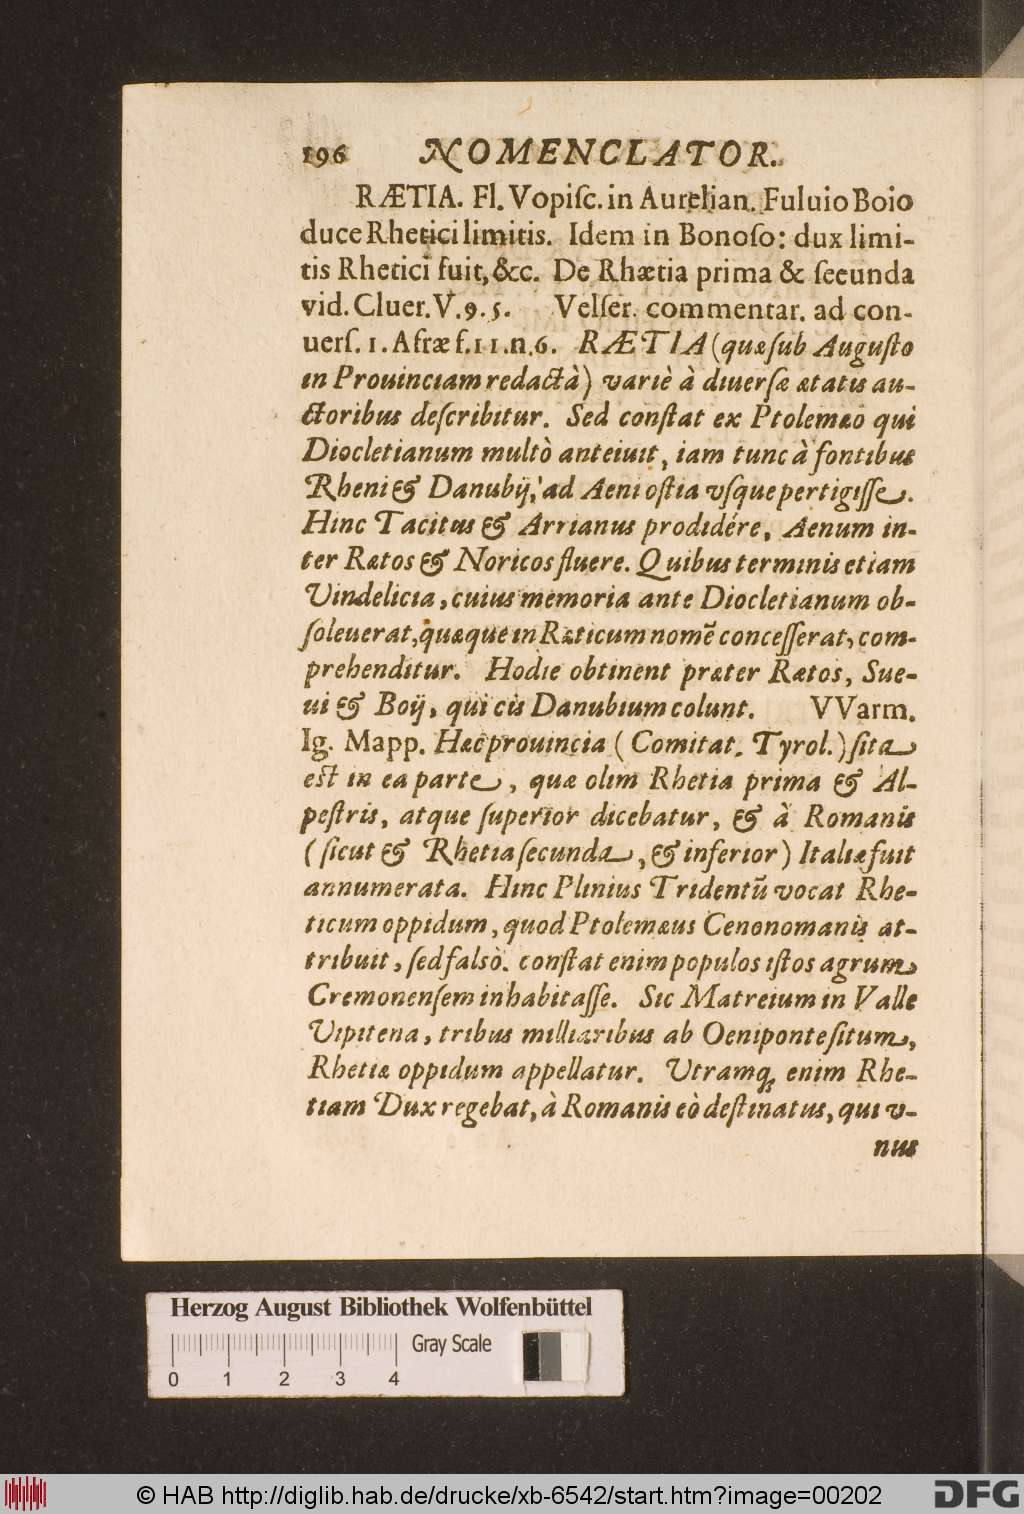 196 NOMENCLATOR.
RÆTIA. Fl. Vopiſc. in Aurelian. Fuluio Boio
duce Rhetici limitis. Idem in Bonoſo: dux limi-
tis Rhetici fuit, &c. De Rhætia prima & ſecunda
vid. Cluer. V. 9. 5. Velſer. commentar. ad con-
uerſ. 1. Afræ f. 11. n. 6. RÆTIA (quæ ſub Auguſto
in Prouinciam redactà) variè à diuerſæ ætatis au-
ctoribus deſcribitur. Sed conſtat ex Ptolemæo qui
Diocletianum multò anteiuit, iam tunc à fontibus
Rheni & Danubij, ad Aeni oſtia vſque pertigiſſe.
Hinc Tacitus & Arrianus prodidére, Aenum in-
ter Rætos & Noricos fluere. Quibus terminis etiam
Vindelicia, cuius memoria ante Diocletianum ob-
ſoleuerat, quæque in Ræticum nomẽ conceſſerat, com-
prehenditur. Hodie obtinent præter Rætos, Sue-
ui & Boij, qui cis Danubium colunt. VVarm.
Ig. Mapp. Hæc prouincia (Comitat. Tyrol.) ſita
est in ea parte, quæ olim Rhetia prima & Al-
peſtris, atque ſuperior dicebatur, & à Romanis
(ſicut & Rhetia ſecunda, & inferior) Italiæ fuit
annumerata. Hinc Plinius Tridentũ vocat Rhe-
ticum oppidum, quod Ptolemæus Cenonomanis at-
tribuit, ſed falsò. conſtat enim populos iſtos agrum
Cremonenſem inhabitaſſe. Sic Matreium in Valle
Vipitena, tribus milliaribus ab Oeniponte ſitum,
Rhetiæ oppidum appellatur. Utramq; enim Rhe-
tiam Dux regebat, à Romanis eò deſtinatus, qui v-
nus
Herzog August Bibliothek Wolfenbüttel
Gray Scale
0 1 2 3 4
© HAB http://diglib.hab.de/drucke/xb-6542/start.htm?image=00202
DFG